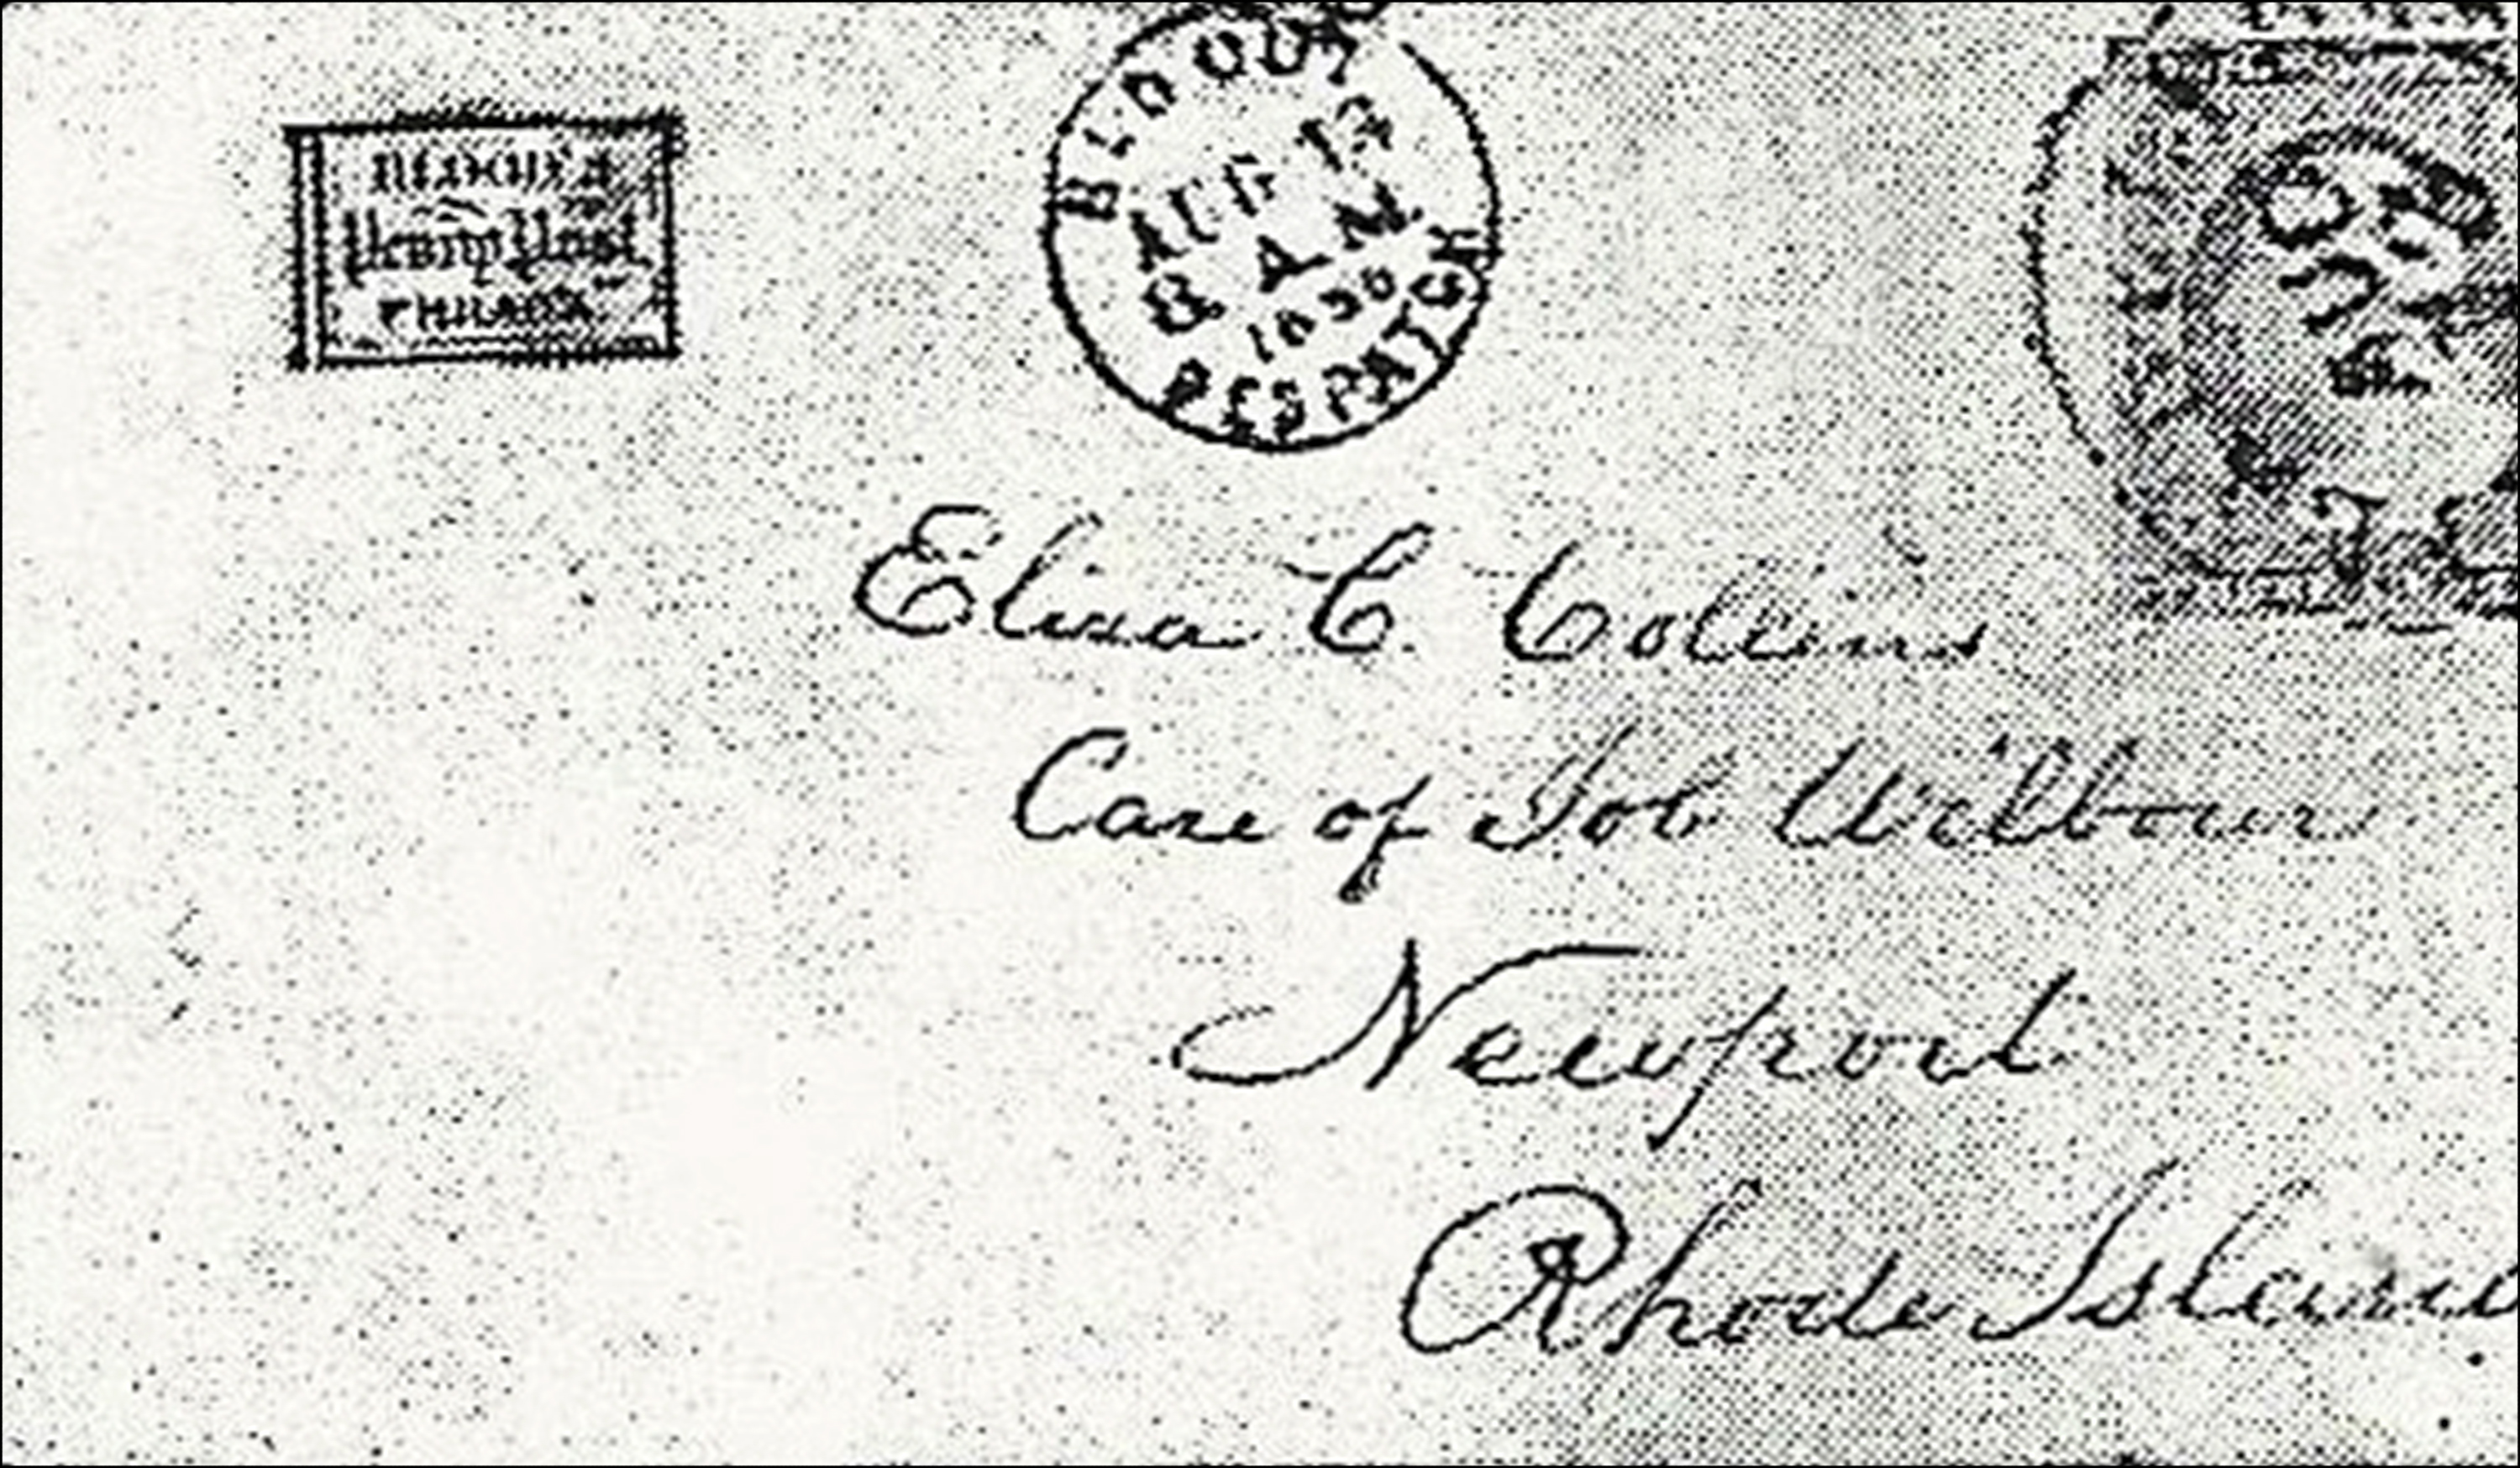 BLOOD'S
Penny Post
PHILAD'A
BLOOD'S
AUG 13
8 A M
DESPATCH
Eliza C. Collins
Care of Job Wilbour
Newport
Rhode Islan